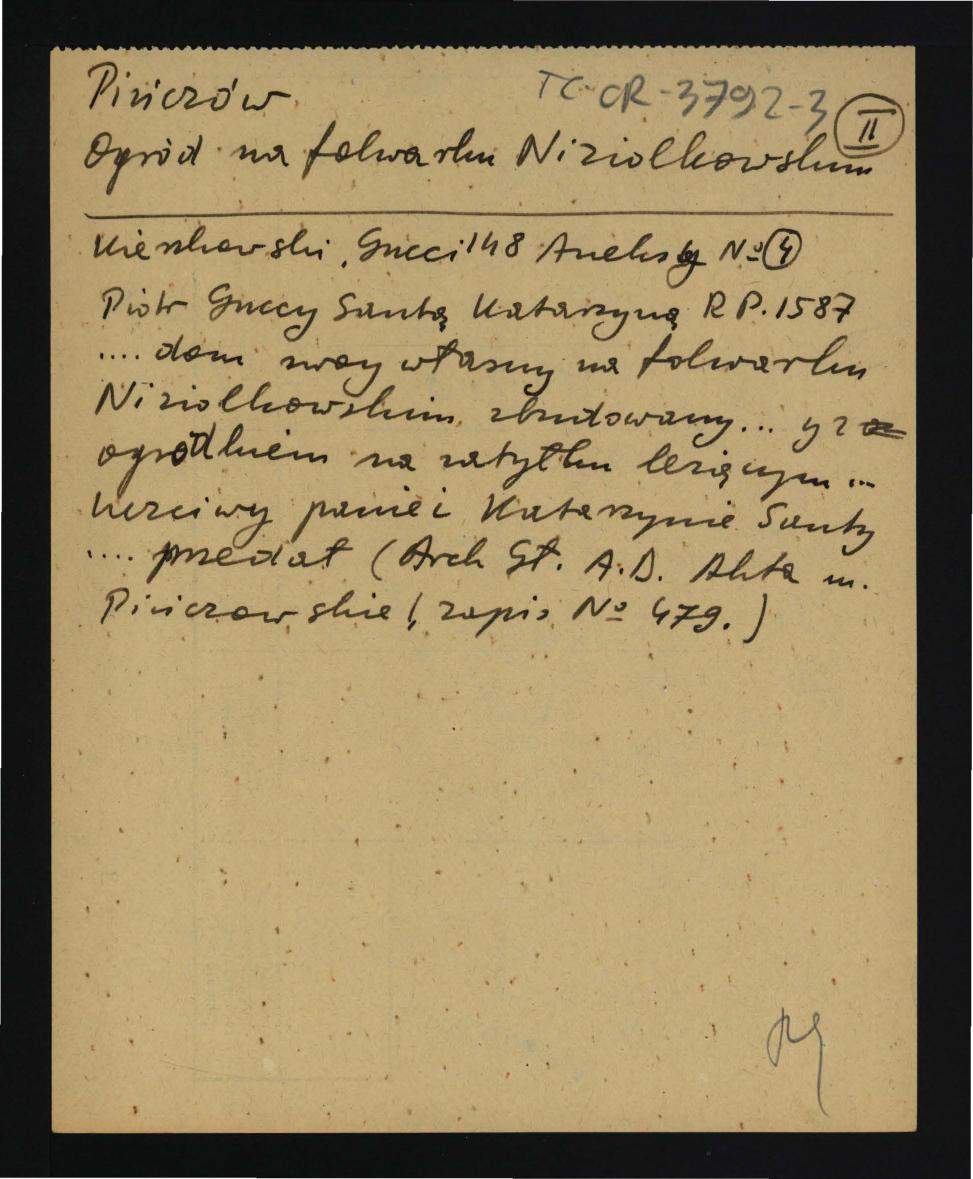 Pińczów TC-CR-3792-3
II
Ogród na folwarku Niziolkowskim
Kieszkowski, Gucci 148 Aneksy № 4
Piotr Guccy Santą Katarzyną R P. 1587
.... dom swoy własny na folwarku
Niziolkowskim zbudowany... y z
ogrodkiem na zatyłku lezącym ...
uczciwy paniei Katarzynie Santy
.... przedał (Arch Gł. A.D. Akta m.
Pińczowskie, zapis № 479.)